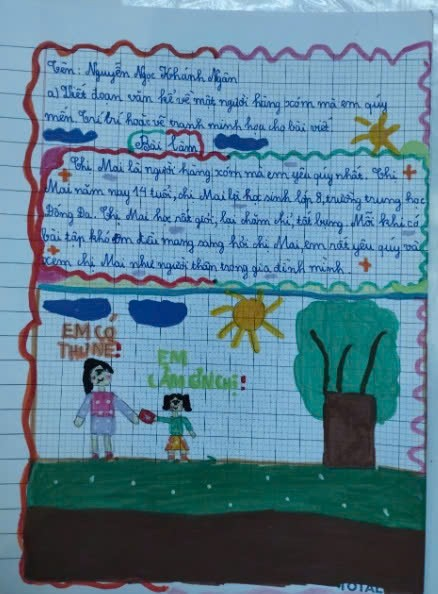 Tên: Nguyễn Ngọc Khánh Ngân
a) Viết đoạn văn kể về một người hàng xóm mà em quý
mến. Trí trí hoặc vẽ tranh minh họa cho bài viết
Bài làm
Chị Mai là người hàng xóm mà em yêu quý nhất. Chị
Mai năm nay 14 tuổi, chị Mai là học sinh lớp 8, trường trung học
Đống Đa. Chị Mai học rất giỏi, lại chăm chỉ, tốt bụng. Mỗi khi có
bài tập khó em đều mang sang hỏi chị Mai, em rất yêu quý và
xem chị Mai như người thân trong gia đình mình
EM CÓ
THƯ NÈ!
EM
CẢM ƠN CHỊ!
TOTAL